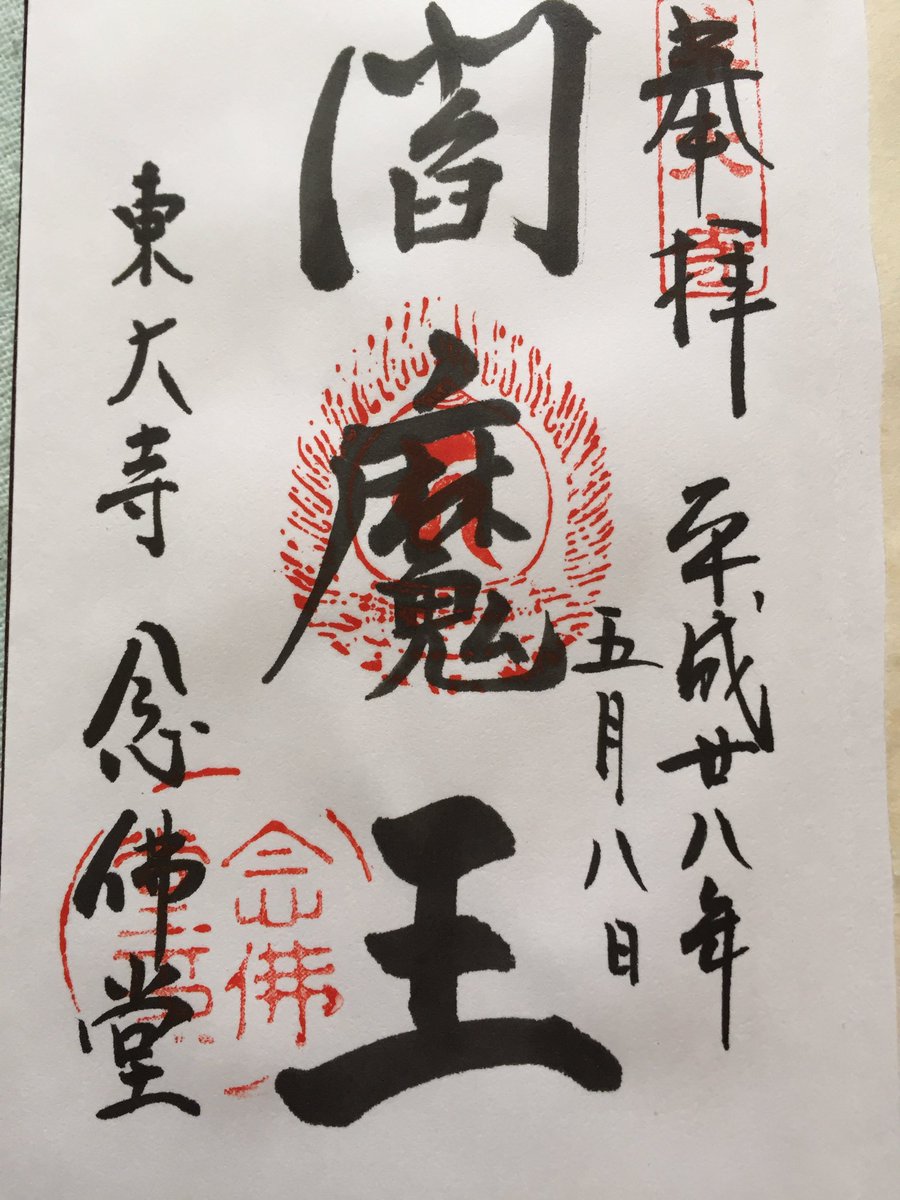 奉拝
平成廿八年
五月八日
閻魔王
東大寺 念佛堂
念佛